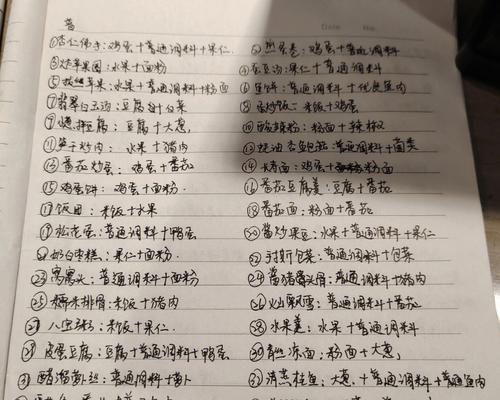 Date No.
①杏仁佛手：鸡蛋＋普通调料＋果仁. ②煎蛋卷：鸡蛋＋普通调料
③炸苹果圈：水果＋面粉 ④五豆沙：果仁＋普通调料
⑤拔丝苹果：水果＋普通调料＋面粉 ⑥鱼饼：普通调料＋优良鱼肉
⑦翡翠白玉汤：豆腐＋白菜 ⑧蛋炒饭：米饭＋鸡蛋
⑨豆腐：豆腐＋大葱， ⑩酸辣粉：粉面＋辣椒
⑪果子肉：水果＋猪肉 ⑫蚝油杏鲍菇：普通调料＋菌类
⑬番茄炒蛋：鸡蛋＋番茄 ⑭烤面：鸡蛋＋粉面
⑮鸡蛋饼：鸡蛋＋面粉. ⑯番茄豆腐羹：豆腐＋番茄
⑰饭团：米饭＋水果 ⑱番茄面：粉面＋番茄
⑲松花蛋：普通调料＋鸭蛋 ⑳酱炒果豆：水果＋普通调料＋果仁
奶白枣糕：果仁＋面粉. 手撕包菜：普通调料＋包菜
㉓窝窝头：普通调料＋面粉 ㉔酱猪骨：普通调料＋猪肉
㉕糯米排骨：米饭＋猪肉 ㉖火山飘雪：普通调料＋番茄
㉗八宝粥：米饭＋果仁. ㉘水果羹：水果＋普通调料
皮蛋豆腐：豆腐＋普通调料＋鸭蛋 ㉚冻面：粉面＋大葱，
㉛醋溜萝卜丝：普通调料＋萝卜 ㉜清蒸桂鱼：大葱，＋普通调料＋普通鱼肉